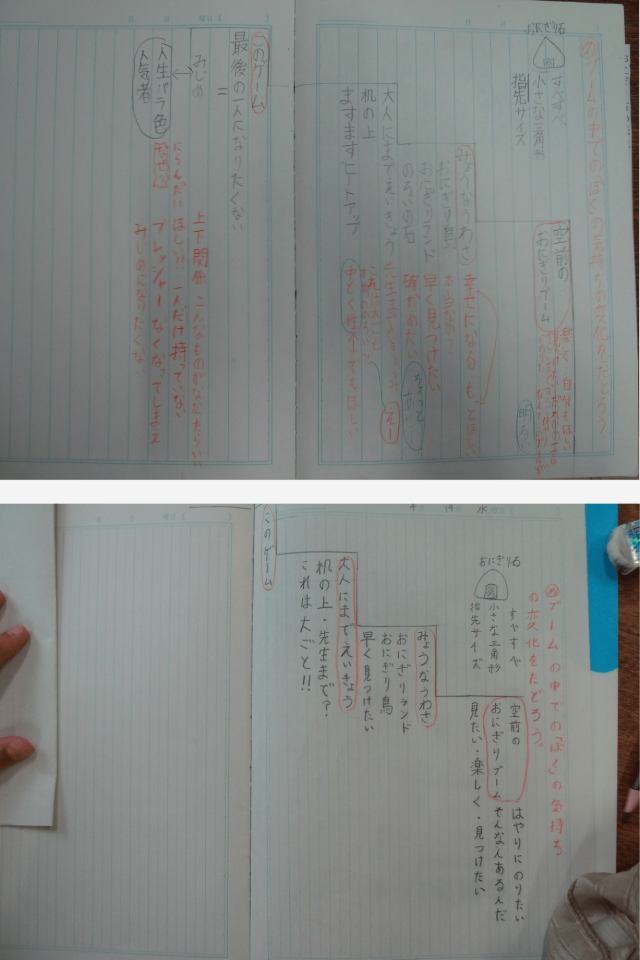 めブームの中でのぼくの気持ちの変化をたどろう
おにぎり石
すべすべ
小さな三角形
指先サイズ
空前の
おにぎりブーム
明るい
みょうなうわさ
おにぎり鳥
おにぎりランド
のろいの石
幸せになる もっとほしい
早く見つけたい
確かめたい
大人にまでえいきょう
机の上
ますますヒートアップ
このゲーム
最後の一人になりたくない
＝
みじめ
人生バラ色
人気者
上下関係 こんなものがなければいい
ほしい!! 一人だけ持っていない
プレッシャー なくなってしまえ
みじめになりたくない
4月 14日 水曜日
めブームの中での「ぼく」の気持ち
の変化をたどろう。
おにぎり石
すべすべ
小さな三角形
指先サイズ
空前の はやりにのりたい
おにぎりブーム そんな人あるんだ
見たい・楽しく・見つけたい
みょうなうわさ
おにぎりランド
おにぎり鳥
早く見つけたい
大人にまでえいきょう
机の上・先生まで?
これは大ごと!!
このゲーム